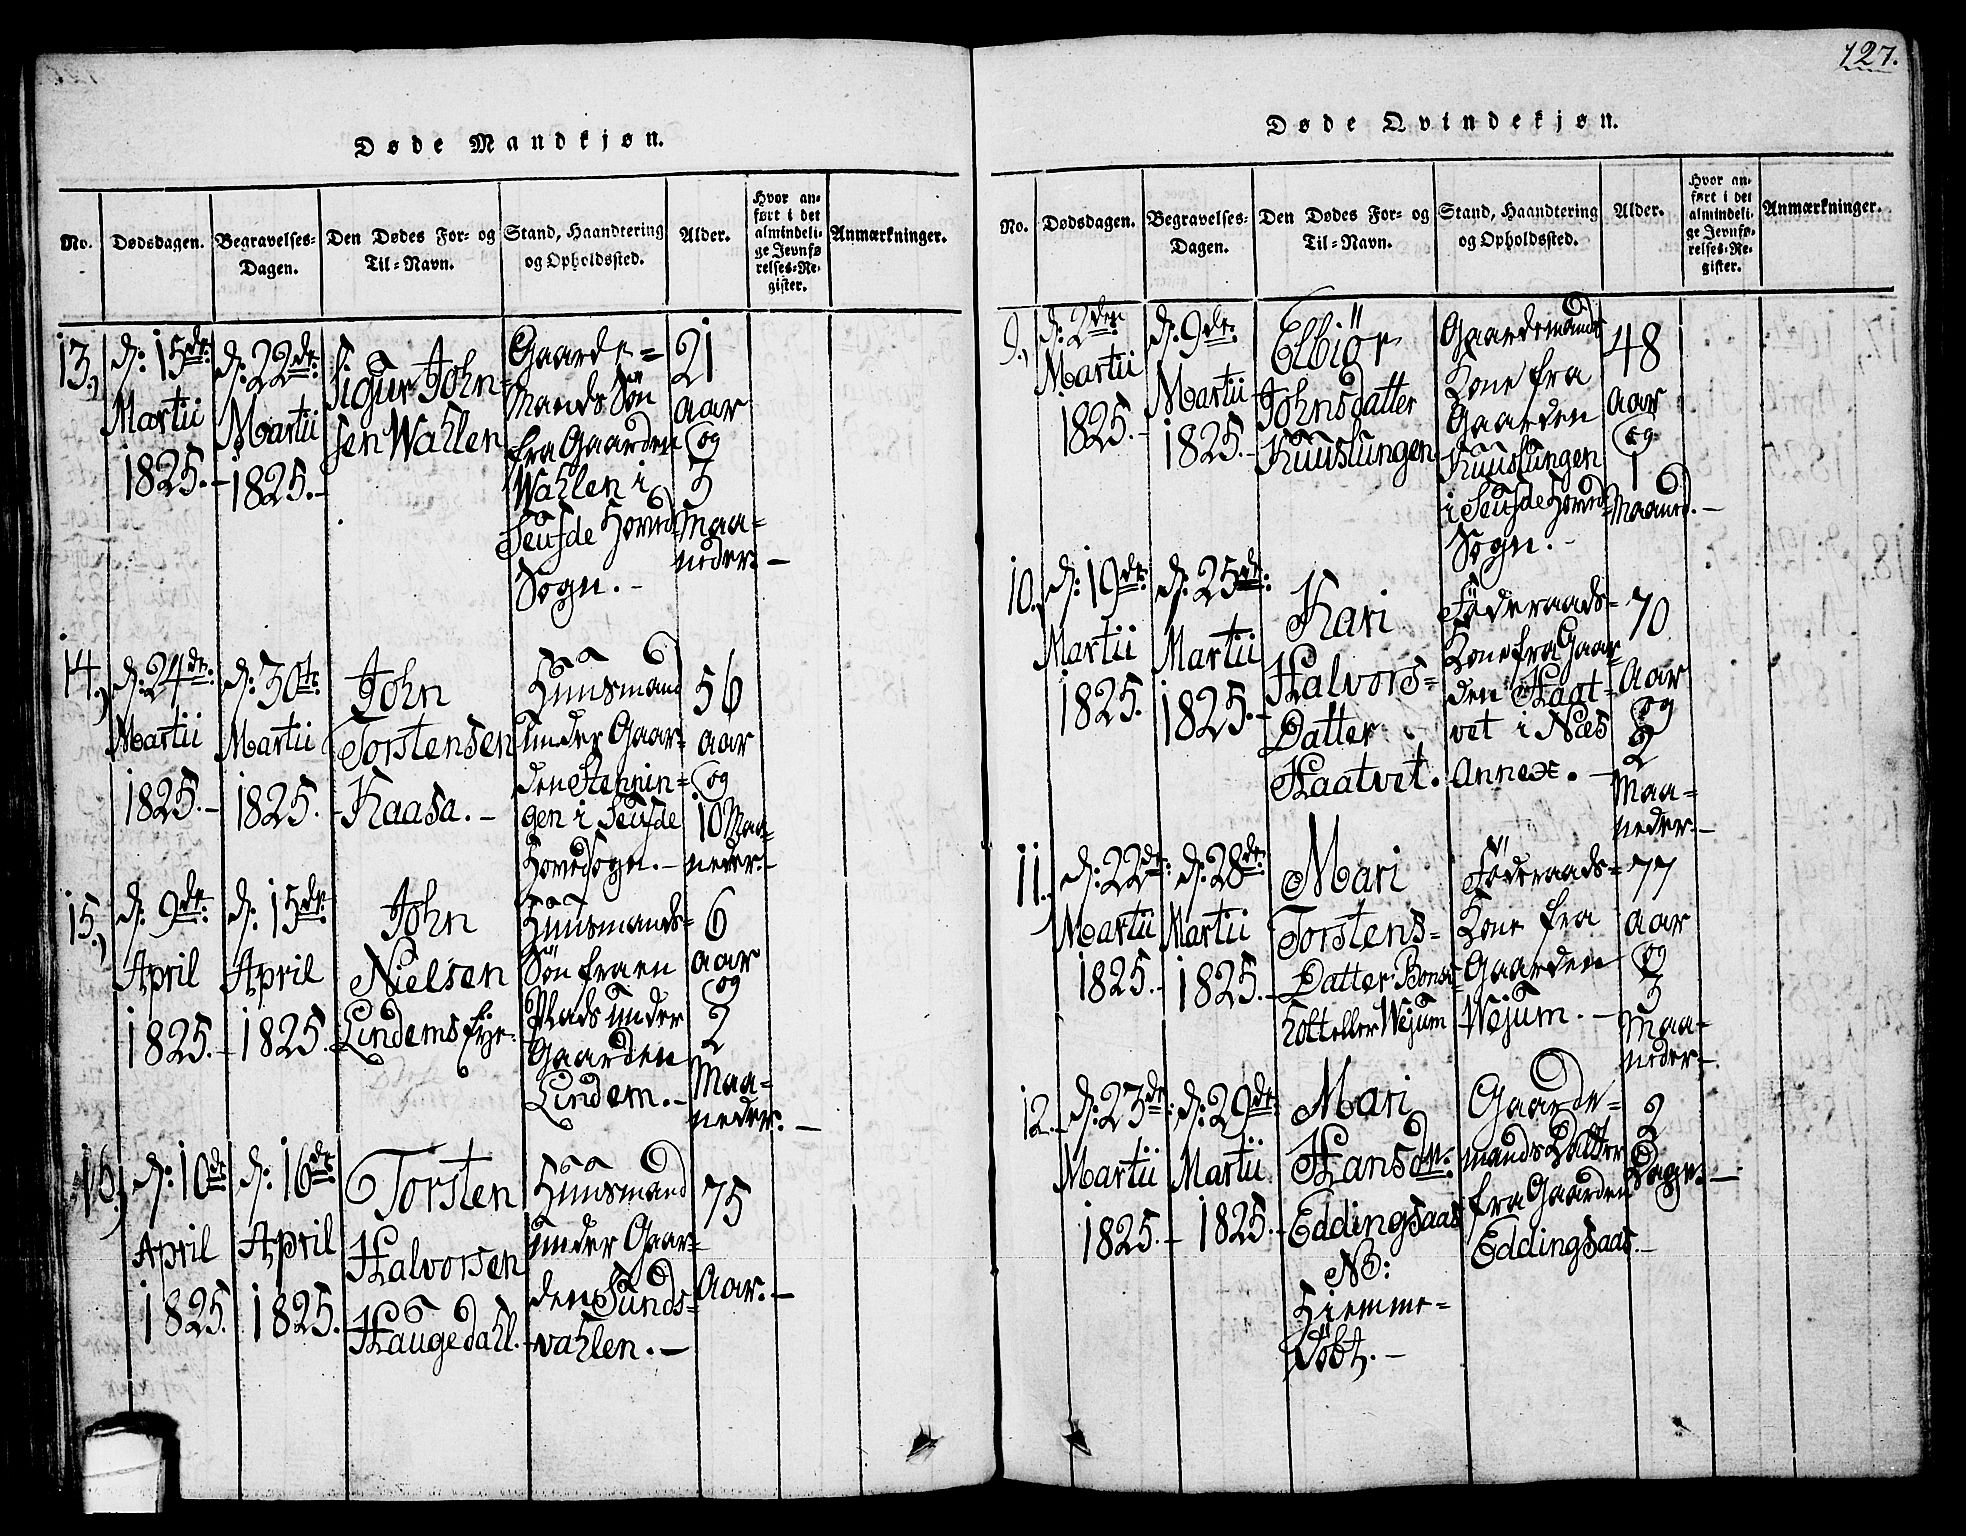 127.
Døde Mandkjøn.
No.
Dødsdagen.
Begravelses-
Dagen.
Den Dødes For- og
Til-Navn.
Stand, Haandtering
og Opholdssted.
Alder.
Hvor an-
ført i det
almindeli-
ge Jevnfø-
relses-Re-
gister.
Anmærkninger.
13.,
d: 15de
Martii
1825.-
d: 22de
Martii
1825.-
Sigur John-
sen Wahlen
Gaarde-
Mands Søn
fra Gaarden
Wahlen i
Seufde Hoved
Sogn.-
21
aar
og
3
Maa-
neder.-
14.,
d: 24de
Martii
1825.-
d: 30te
Martii
1825.-
John
Torstensen
Kaasa.-
Huusmand
under Gaar-
den
gen i Seufde
Hovedsogn.-
56
aar
og
10 Maa-
neder.-
15.,
d: 9de
April
1825.-
d: 15de
April
1825.
John
Nielsen
Lindemseye.
Huusmands-
Søn fra en
Plads under
Gaarden
Lindem.-
6
aar
og
2
Maa-
neder.-
16.,
d: 10de
April
1825.
d: 16de
April
1825.-
Torsten
Halvorsen
Haugedahl.
Huusmand
under Gaar-
den Sunds-
vahlen.-
75
Aar.-
Døde Qvindekjøn.
No.
Dødsdagen.
Begravelses-
Dagen.
Den Dødes For- og
Til-Navn.
Stand, Haandtering
og Opholdssted.
Alder.
Hvor an-
ført i det
almindeli-
ge Jevnfø-
relses-Re-
gister.
Anmærkninger.
9.,
d: 2den
Martii
1825.-
d: 9de
Martii
1825.-
Elbiör
Johnsdatter
Kuuslungen
Gaardemands
Kone fra
Gaarden
Kuuslungen
i Seufde Hoved-
Sogn.-
48
aar
og
1
Maaned.-
10.,
d: 19de
Martii
1825.
d: 25de
Martii
1825.-
Kari
Halvors-
Datter
Haatvet.
Föderaads-
Kone fra Gaar-
den Haat-
vet i Næs
Annex.-
70
Aar
og
2
Maa-
neder.-
11.,
d: 22de
Martii
1825.-
d: 28de
Martii
1825.-
Mari
Torstens-
Datter
holt eller Wejum
Föderaads-
Kone fra
Gaarden
Wejum.-
77
aar
og
3
Maa-
neder.-
12.
d: 23de
Martii
1825.-
d: 29de
Martii
1825.-
Mari
Hansdtr:
Eddingsaas
NB:
Hiemme-
Döbt.-
Gaarde-
mands Datter
fra Gaarden
Eddingsaas.-
2
Dage.-